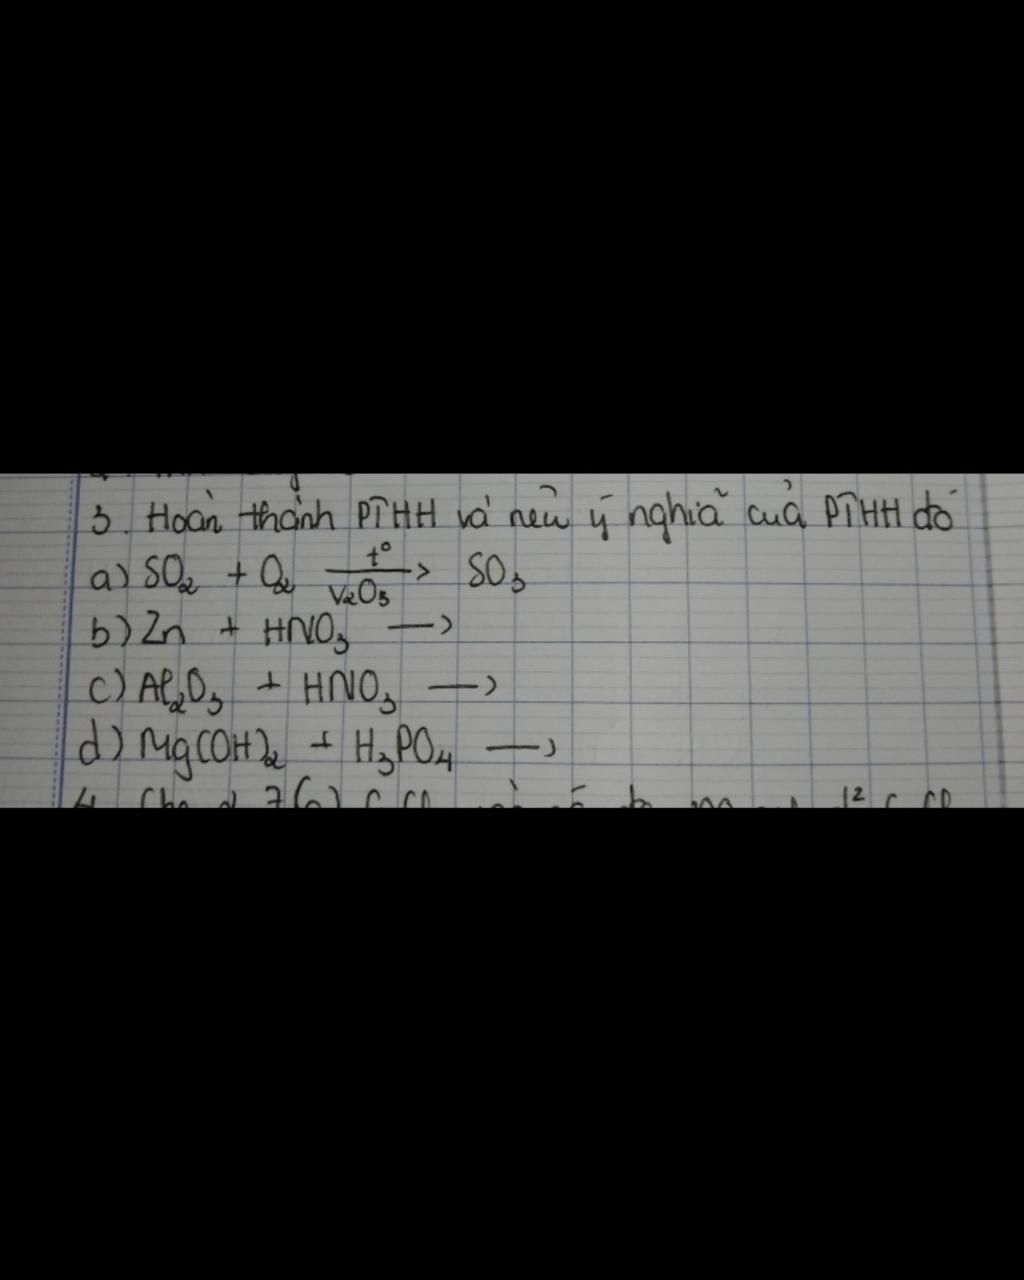 3. Hoàn thành PTHH và nêu ý nghĩa của PTHH đó
a) SO₂ + O₂ —t°/V₂O₅→ SO₃
b) Zn + HNO₃ →
c) Al₂O₃ + HNO₃ →
d) Mg(OH)₂ + H₃PO₄ →